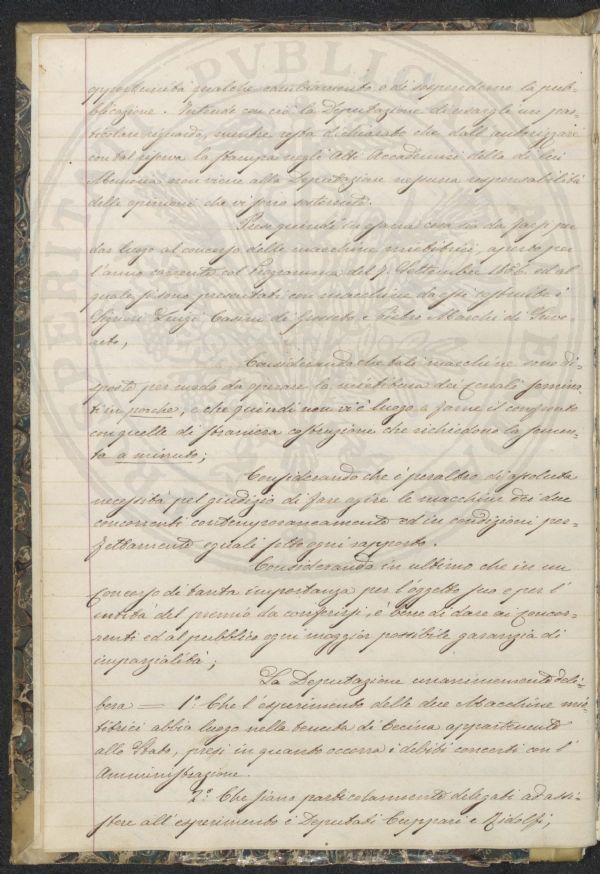 opportunità qualche cambiamento o di sospenderne la pub-
blicazione. Intende con ciò la Deputazione di usargli un par-
ticolare riguardo, mentre resta dichiarato che dall'autorizzare
con tal riserva la stampa negli Atti Accademici della di lei
Memoria non viene alla Deputazione nessuna responsabilità
delle opinioni che vi sono sostenute.
Presa quindi in esame cosa sia da farsi per
dar luogo al concorso delle macchine mietitrici, aperto per
l'anno corrente col Programma del 7. Settembre 1856. ed al
quale si sono presentati con macchine da essi costruite i
Signori Luigi Casini di Grosseto e Pietro Marchi di Suve-
reto,
Considerando che tali macchine sono di-
sposte per modo da operare la mietitura dei Cereali semina-
ti in porche, e che quindi non vi è luogo a farne il confronto
con quelle di straniera costruzione che richiedono la semen-
ta a minuto;
Considerando che è peraltro di assoluta
necessità pel giudizio di fare agire le macchine dei due
concorrenti contemporaneamente ed in condizioni per-
fettamente eguali sotto ogni rapporto.
Considerando in ultimo che in un
Concorso di tanta importanza per l'oggetto suo e per l'
entità del premio da conferirsi, è bene di dare ai Concor-
renti ed al pubblico ogni maggior possibile garanzia di
imparzialità;
La Deputazione unanimemente deli-
bera = 1.° Che l'esperimento delle due Macchine mie-
titrici abbia luogo nella tenuta di Cecina appartenente
allo Stato, presi in quanto occorra i debiti concerti con l'
Amministrazione.
2.° Che siano particolarmente delegati ad assi-
stere all'esperimento i Deputati Cuppari e Ridolfi;
PVBLIC